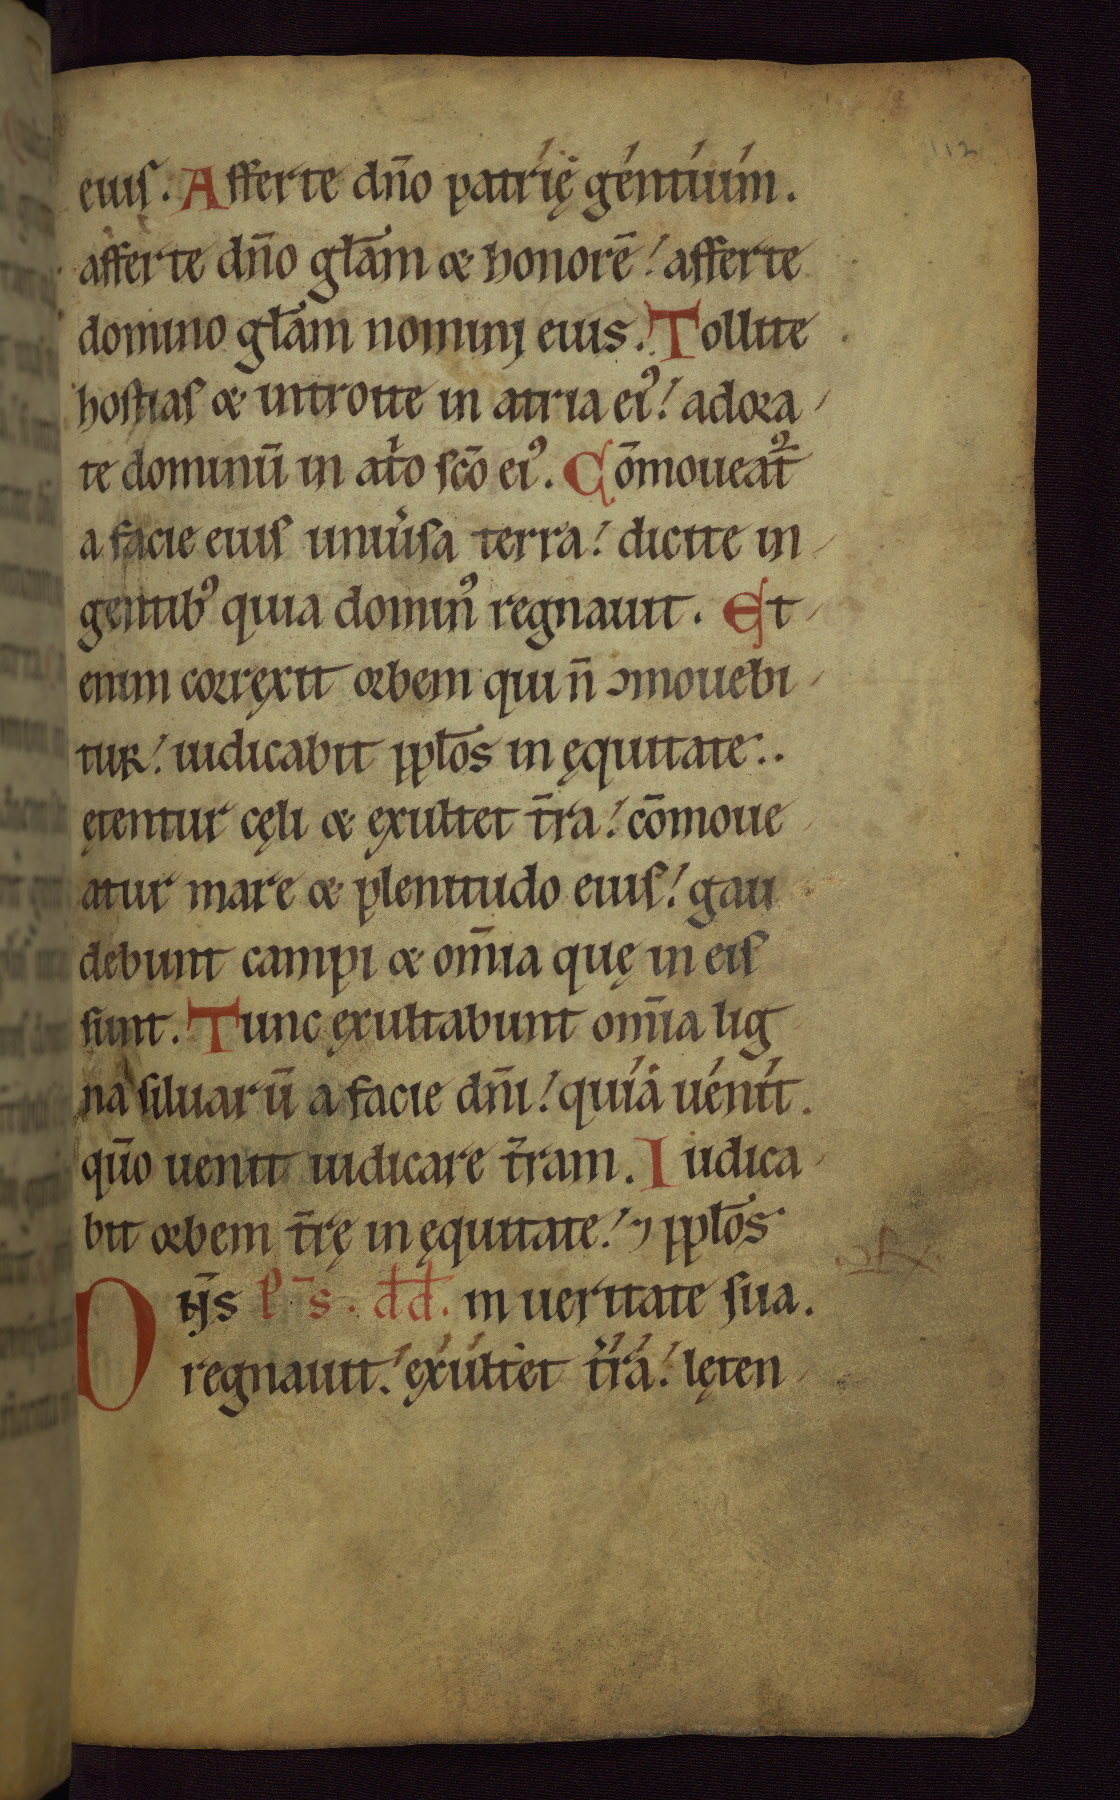 112
eiuſ. Afferte dn̄o patrię gentium.
afferte dn̄o gl̄am & honorē! afferte
domino gl̄am nomini eius. Tollite
hoſtiaſ & introite in atria ei⁹! adora
te dominū in at̓o ſcō ei⁹. Cōmoueat᷑
a facie eiuſ uniu̓ſa terra! dicite in
gentib⁹ quia domin⁹ regnauit. Et
enim corręxit orbem qui n̄ ↄmouebi
tur! iudicabit ppl̄os in ęquitate..
ętentur cęli & exultet t̄ra! cōmoue
atur mare & plenitudo eiuſ! gau
debunt campi & om̄ia quę in eiſ
ſunt. Tunc exultabunt om̄ia lig
na ſiluarū a facie dn̄i! quia uenit.
qūo uenit iudicare t̄ram. Iudica
bit orbem t̄rę in ęquitate! ⁊ ppl̄os
Dn̄s p̄s. dd. in ueritate ſua.
regnauit! exultet t̄ra! lęten